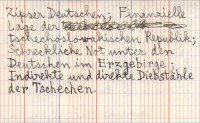 Zipser Deutschen; Finanzielle
Lage der
tschechoslowakischen Republik;
Schreckliche Not unter den
Deutschen im Erzgebirge;
Indirekte und direkte Diebstähle
der Tschechen.